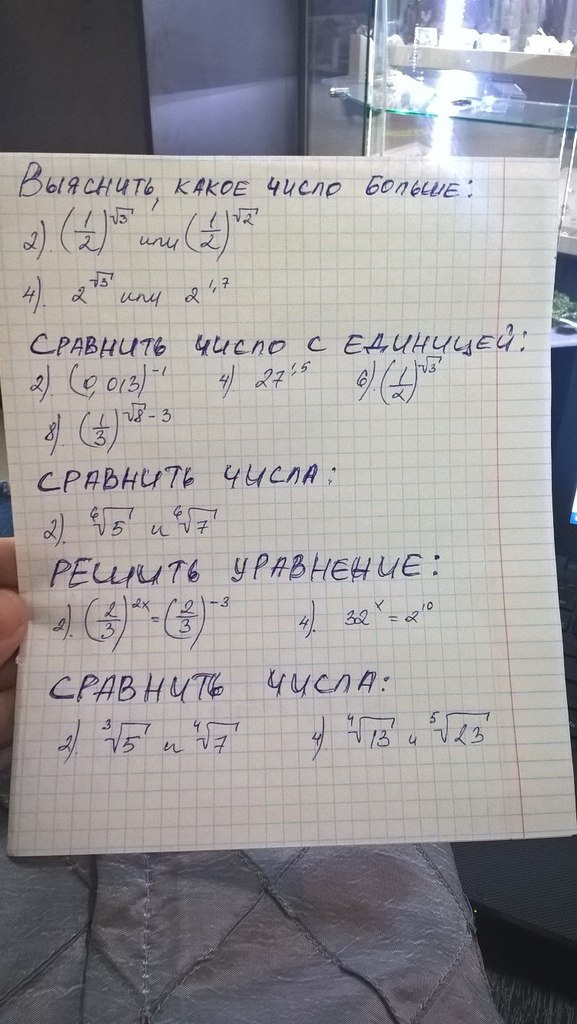 Выяснить, какое число больше:
2). (1/2)^√3 или (1/2)^√2
4). 2^√3 или 2^1,7
Сравнить число с единицей:
2). (0,013)^-1 4) 27^1,5 6). (1/2)^√3
8). (1/3)^√8-3
Сравнить числа:
2). ⁶√5 и ⁶√7
Решить уравнение:
2). (2/3)^2x = (2/3)^-3 4). 32^x = 2^10
Сравнить числа:
2). ³√5 и ⁴√7 4). ⁴√13 и ⁵√23